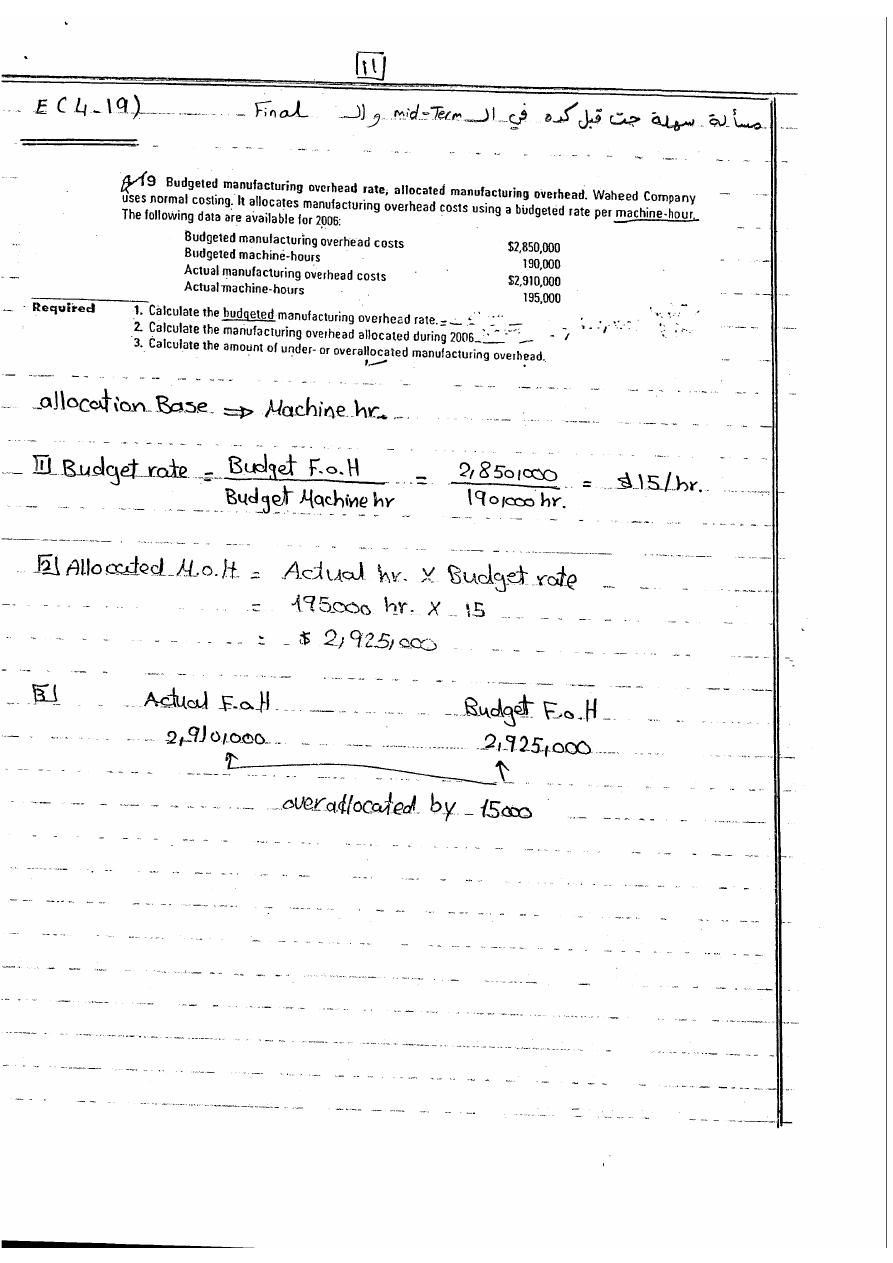 11
E(4-19) Final مسألة سهلة جت قبل كده في الـ mid-Term و الـ
4-19 Budgeted manufacturing overhead rate, allocated manufacturing overhead. Waheed Company
uses normal costing. It allocates manufacturing overhead costs using a budgeted rate per machine-hour.
The following data are available for 2006:
Budgeted manufacturing overhead costs $2,850,000
Budgeted machine-hours 190,000
Actual manufacturing overhead costs $2,910,000
Actual machine-hours 195,000
Required 1. Calculate the budgeted manufacturing overhead rate.
2. Calculate the manufacturing overhead allocated during 2006
3. Calculate the amount of under- or overallocated manufacturing overhead.
allocation Base ⇒ Machine hr.
1 Budget rate = Budget F.o.H / Budget Machine hr = 2,850,000 / 190,000 hr. = $15/hr.
2 Allocated M.o.H = Actual hr. X Budget rate
= 195000 hr. X 15
= $ 2,925,000
3 Actual F.o.H Budget F.o.H
2,910,000 2,925,000
overallocated by 15000